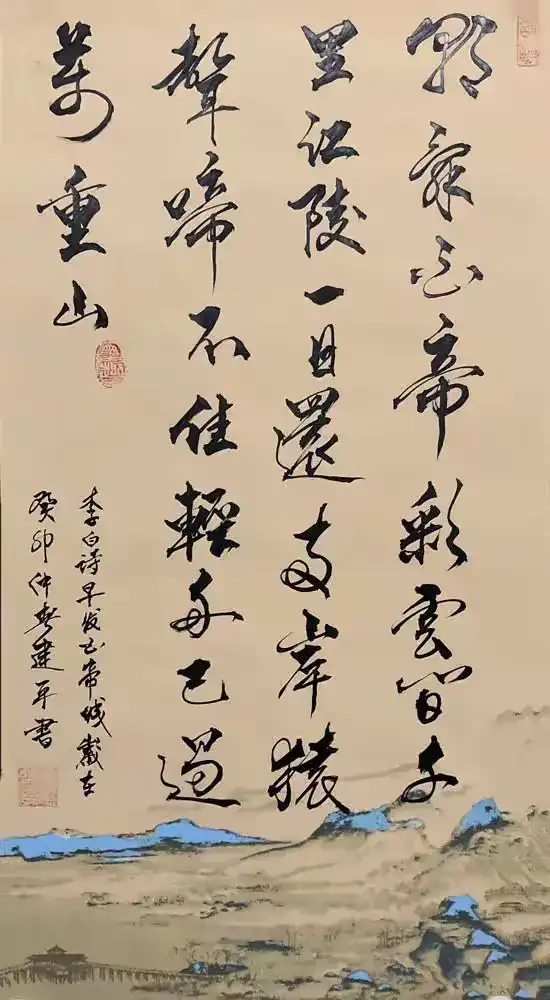 朝辞白帝彩雲間千
里江陵一日還两岸猿
聲啼不住輕舟已過
萬重山
李白诗早发白帝城歲在
癸卯仲春建平書